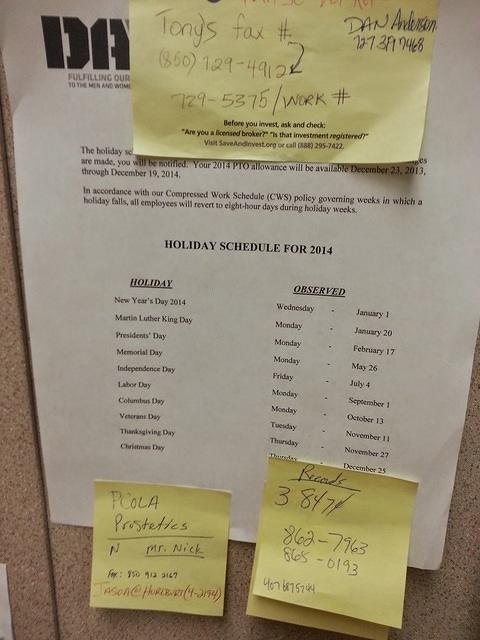 DAN Anderson
Tony's fax #
727 3197468
(850) 729-4912
729-5375/WORK #
Before you invest, ask and check:
"Are you a licensed broker?" "Is that investment registered?"
Visit SaveAndInvest.org or call (888) 295-7422.
DA
FULFILLING OUR
TO THE MEN AND WOME
The holiday sc
ges
are made, you will be notified. Your 2014 PTO allowance will be available December 23, 2013,
through December 19, 2014.
In accordance with our Compressed Work Schedule (CWS) policy governing weeks in which a
holiday falls, all employees will revert to eight-hour days during holiday weeks.
HOLIDAY SCHEDULE FOR 2014
HOLIDAY OBSERVED
New Year's Day 2014 Wednesday - January 1
Martin Luther King Day Monday - January 20
Presidents' Day Monday - February 17
Memorial Day Monday - May 26
Independence Day Friday - July 4
Labor Day Monday - September 1
Columbus Day Monday - October 13
Veterans Day Tuesday - November 11
Thanksgiving Day Thursday - November 27
Christmas Day Thursday - December 25
PCOLA
Prostetics
N Mr. Nick
Fax: 850 912 2167
JASON@HURLBURT(4-2194)
Records
3 8474
862-7963
865-0193
407 6875744